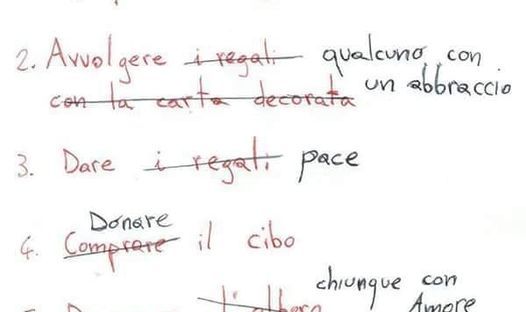 2. Avvolgere i regali qualcuno con
con la carta decorata un abbraccio
3. Dare i regali pace
Donare
4. Comprare il cibo
chiunque con
Amore